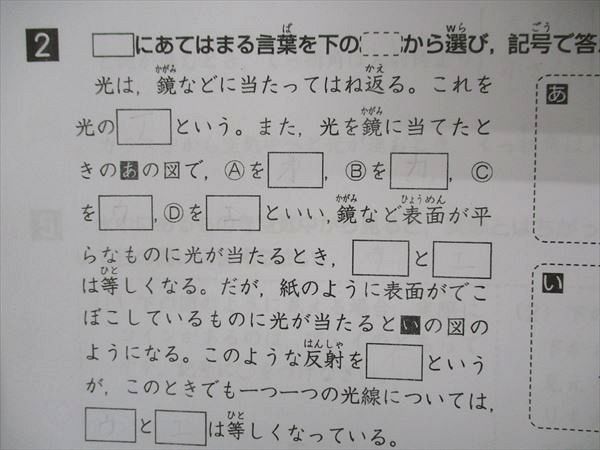 2 □にあてはまる言葉を下の から選び，記号で答
光は，鏡などに当たってはね返る。これを
光の□という。また，光を鏡に当てたと
きのあの図で，Ⓐを□，Ⓑを□，Ⓒ
をウ，Ⓓをエといい，鏡など表面が平
らなものに光が当たるとき，ウとエ
は等しくなる。だが，紙のように表面がでこ
ぼこしているものに光が当たるといの図の
ようになる。このような反射を□という
が，このときでも一つ一つの光線については，
ウとエは等しくなっている。
あ
い